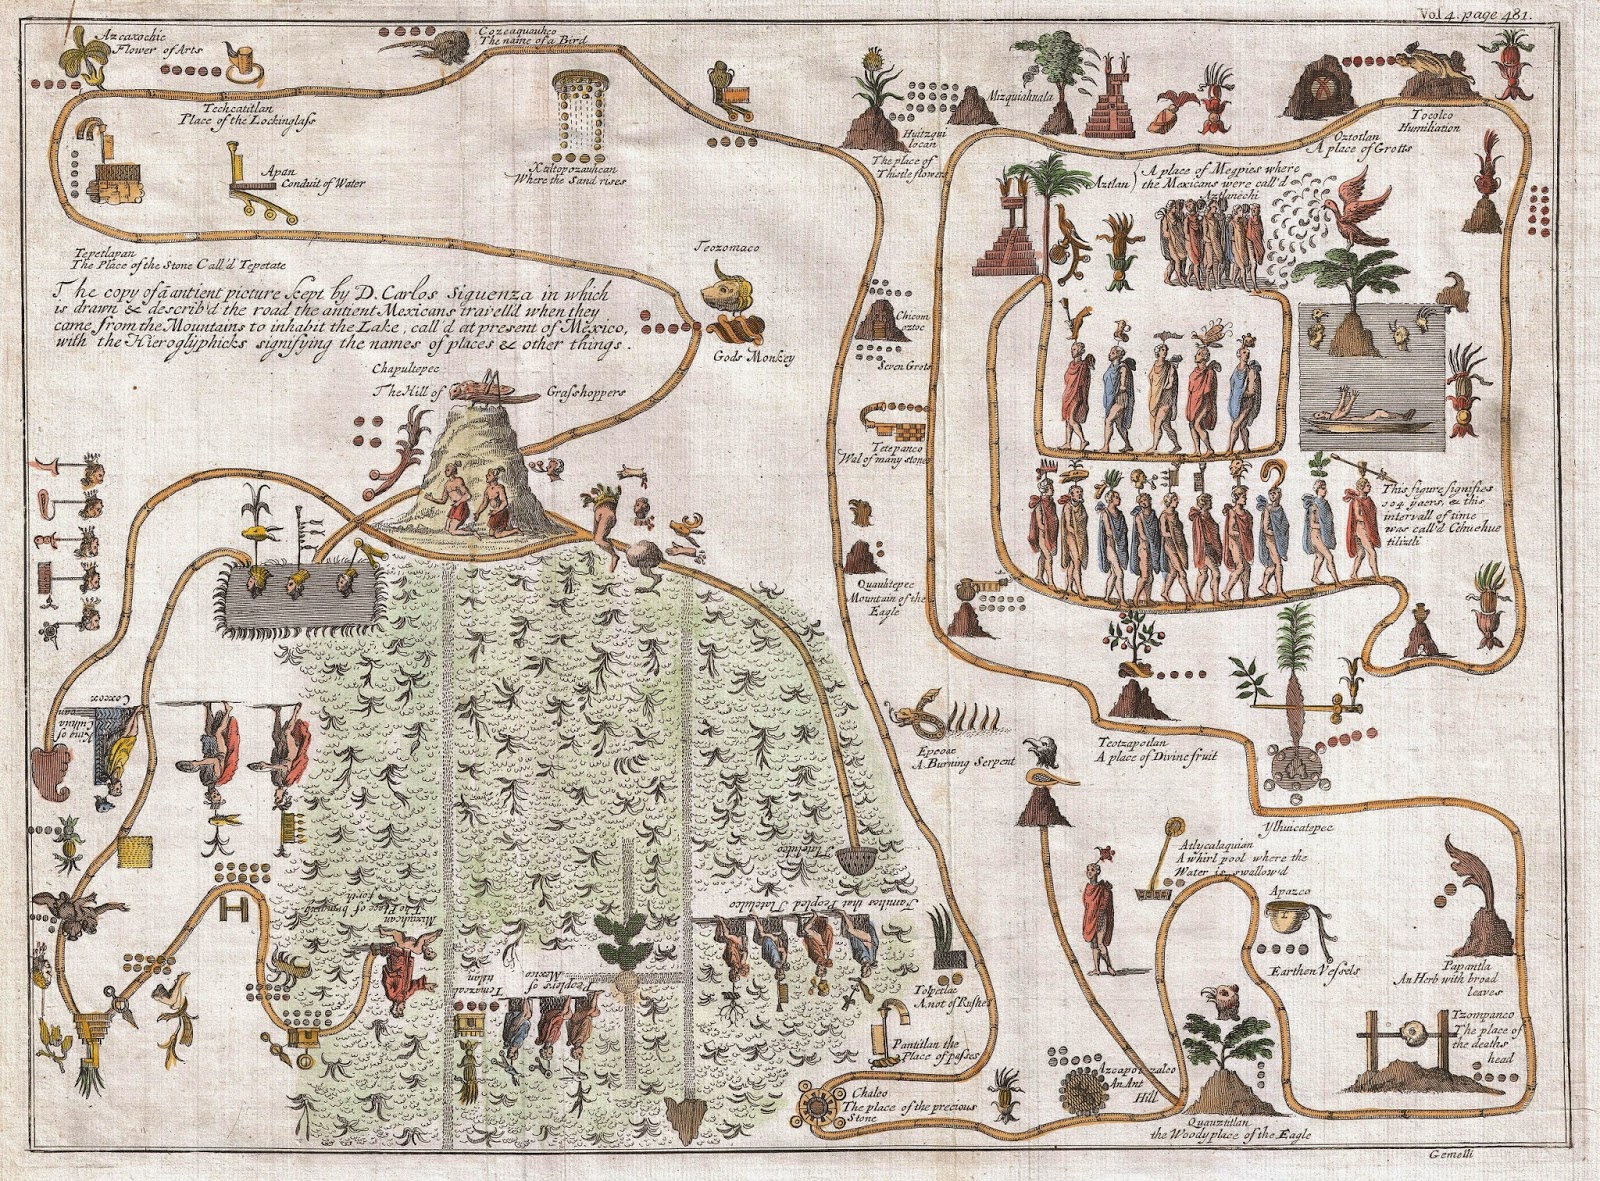 Vol 4. page 481.
Azcaxochic
Flower of Arts
Cozcaquauhco
The name of a Bird
Techcatitlan
Place of the Lockinglass
Apan
Conduit of Water
Xaltopozauhcan
Where the Sand rises
Tepetlapan
The Place of the Stone Call'd Tepetate
The copy of a antient picture kept by D. Carlos Siguenza in which
is drawn & describ'd the road the antient Mexicans travell'd when they
came from the Mountains to inhabit the Lake, call'd at present of Mexico,
with the Hieroglyphicks signifying the names of places & other things.
Teozomaco
Gods Monkey
Chapultepec
The Hill of Grasshoppers
Huitzqui
locan
The place of
Thistle flower
Mizquiahuala
Oztotlan
A place of Grotts
Tocolco
Humiliation
Aztlan
A place of Megpies where
the Mexicans were call'd
Aztlanechi
Chicom
oztoc
Seven Grots
Tetepanco
Wal of many stone
Quauhtepec
Mountain of the
Eagle
This figure signifies
104 years, & this
intervall of time
was call'd Cehuehue
tiliztli
Epcoac
A Burning Serpent
Teotzapotlan
A place of Divine fruit
Ylhuicatepec
Atlycalaquian
A whirl pool where the
Water is swallow'd
Apazco
Earthen Vessels
Papantla
An Herb with broad
leaves
Tzompanco
The place of
the deaths
head
Azcapotzalco
An Ant
Hill
Quauztitlan
the Woody place of the Eagle
Chalco
The place of the precious
Stone
Pantitlan the
Place of passes
Tolpetlac
A not of Rushes
Tlatelulco
Families that Peopled Tlatelulco
Peoplers of
Mexico
Temazcal
titlan
Mixiuhcan
The Place of bringing
forth
Coxcox
King of
Culhuacan
Gemelli